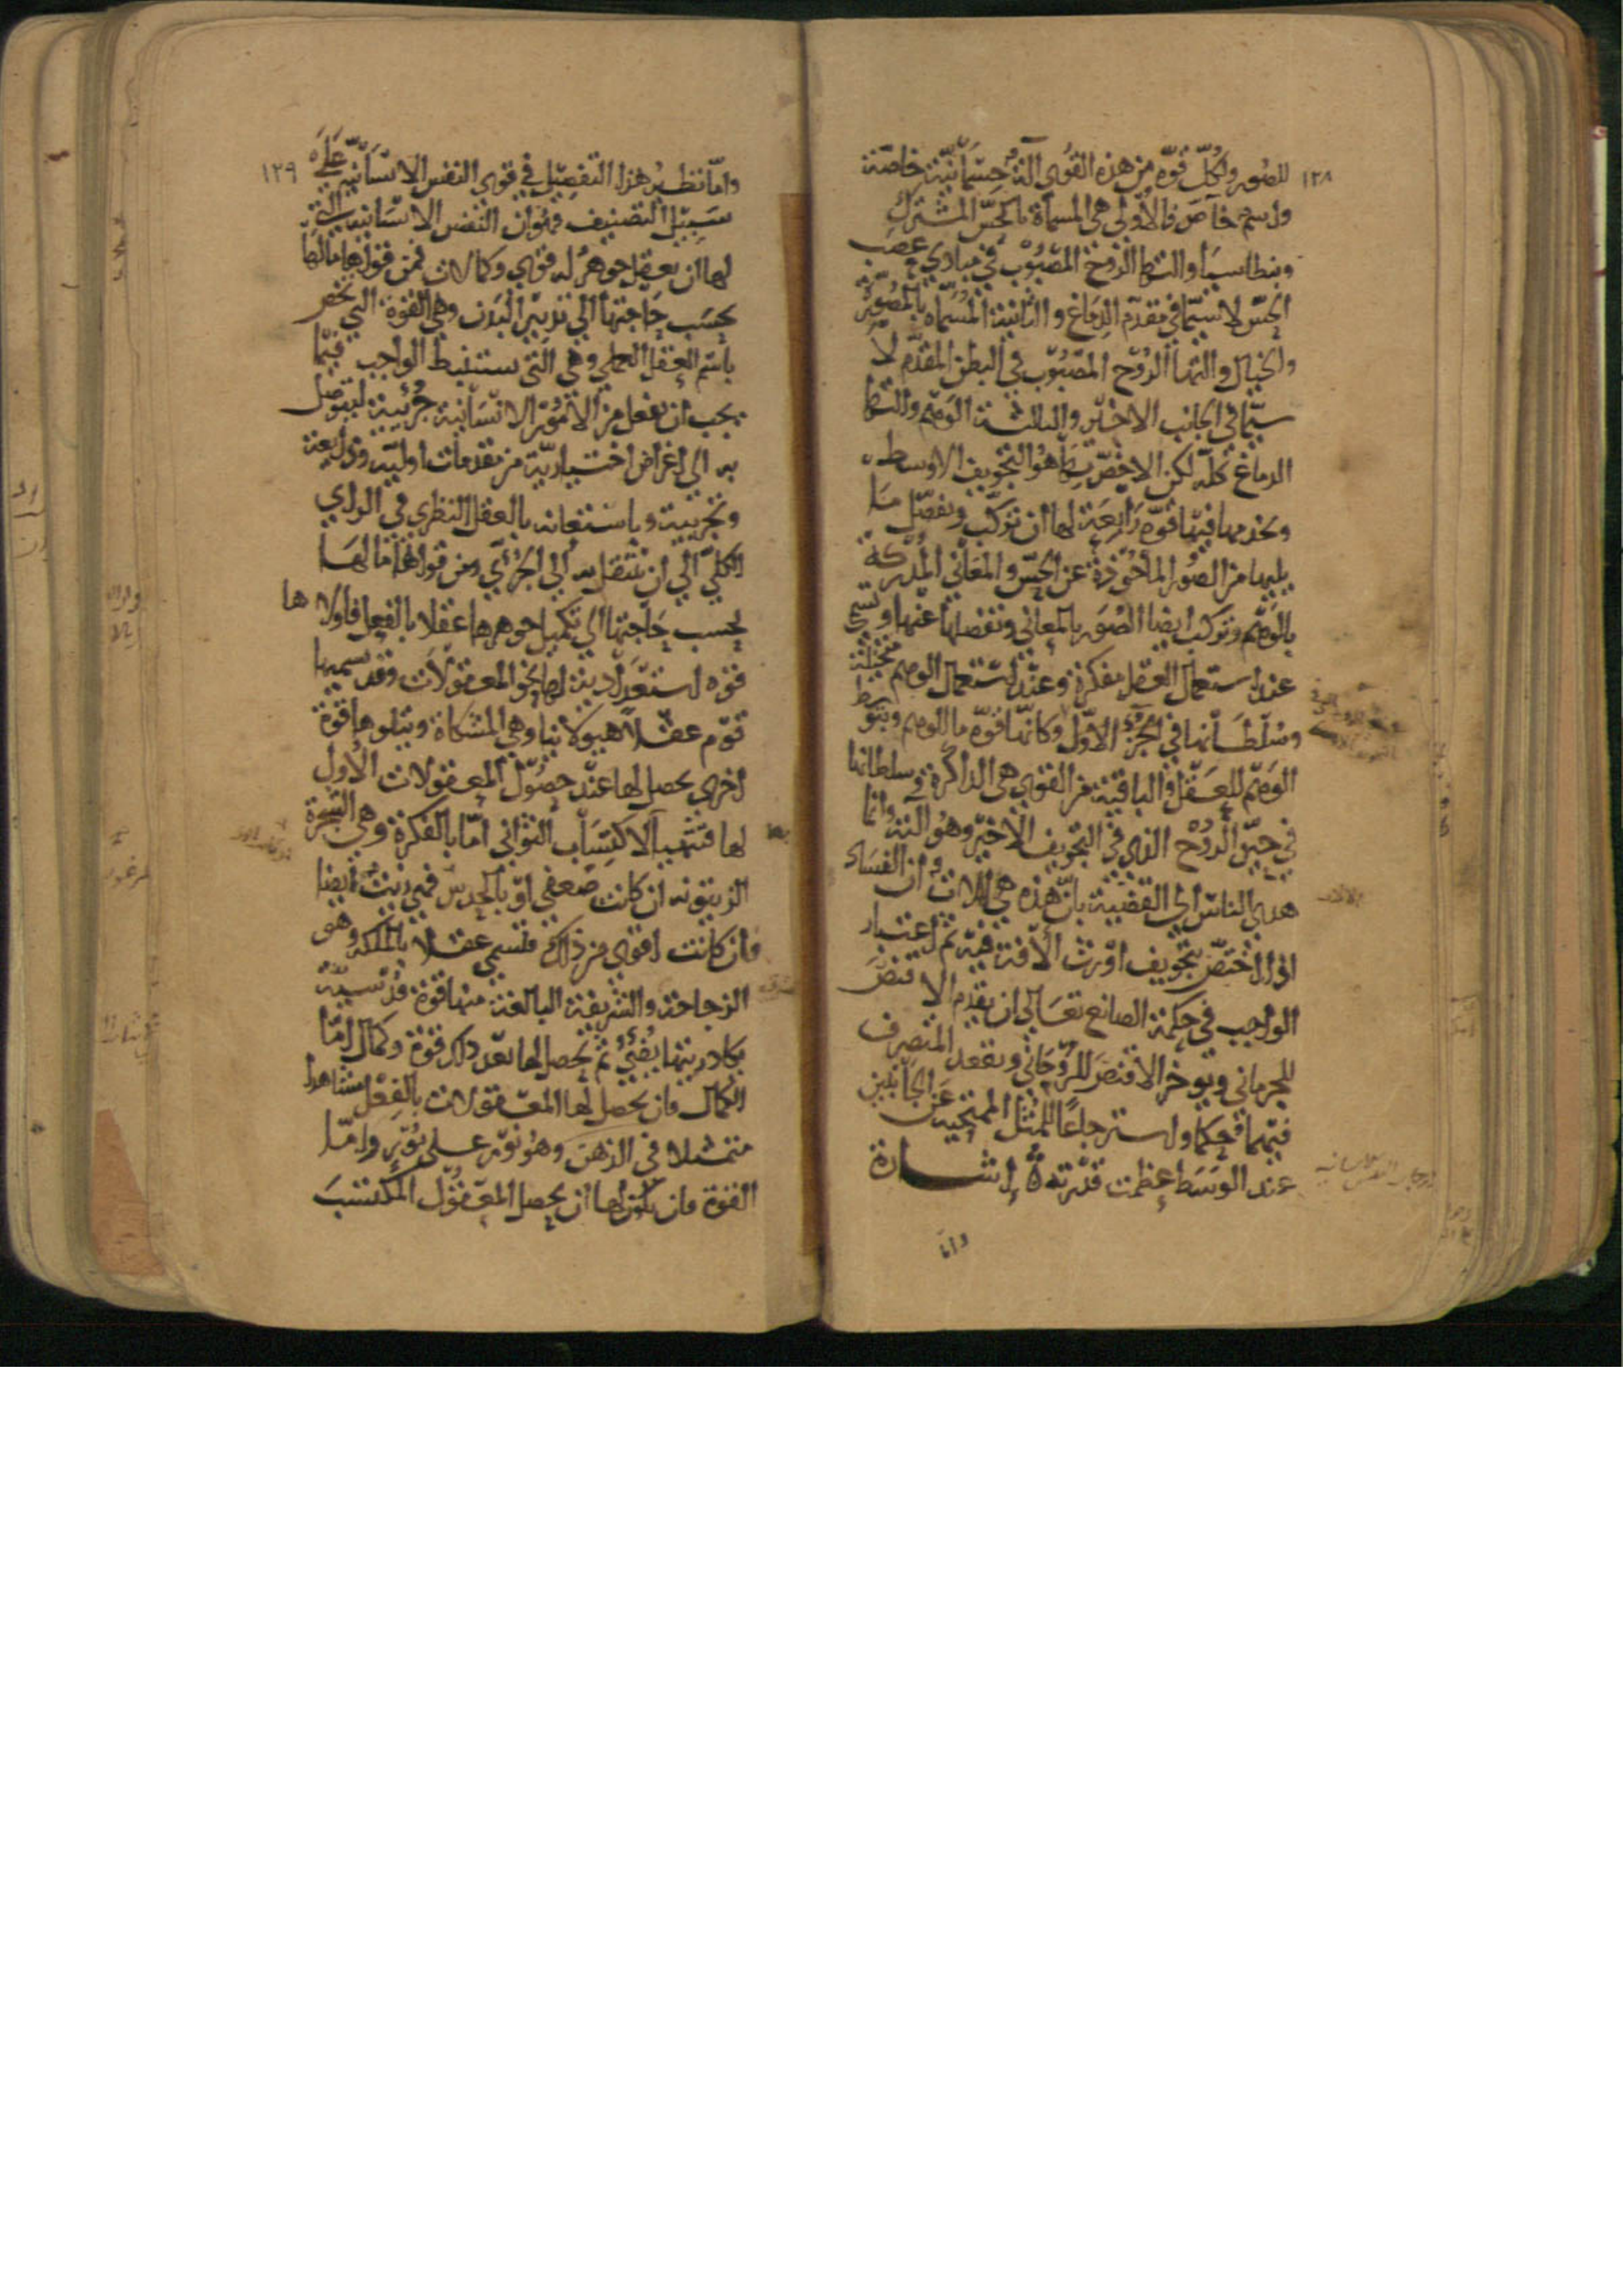 ١٢٨
للصور ولكل قوة من هذه القوى آلة جسمانية خاصة
واسم خاص فالاولى هى المسماة بالحس المشترك
وبنطاسيا والتها الروح المصبوب في مبادي عصب
الحس لا سيما في مقدم الدماغ والثانية المسماه بالمصورة
والخيال والتها الروح المصبوب في البطن المقدم لا
سيما في الجانب الاخير والثالثة الوهم والتها
الدماغ كله لكن الاخص بها هو التجويف الاوسط
وتخدمها فيها قوة رابعة لها ان تركب وتفصل ما
يليها من الصور الماخوذة عن الحس والمعاني المدركة
بالوهم وتركب ايضا الصور بالمعاني وتفصلها عنها وتسمى
عند استعمال العقل مفكرة وعند استعمال الوهم متخيلة
وسلطانها في الجزء الاول وكانها قوة ما للوهم وبتوسط
الوهم للعقل والباقية من القوى هى الذاكرة وسلطانها
في حيز الروح الذي في التجويف الاخير وهو التها وانما
هدى الناس الى القضية بان هذه هى الالات ان الفساد
اذا اختص بتجويف اورث الافة فيه ثم اعتبار
الواجب في حكمة الصانع تعالى ان يقدم الاقنص
للجرماني ويوخر الاقنص للروحاني ويقعد المتصرف
فيهما حكما واسترجاعا للمثل الممتحية عن الجانبين
عند الوسط عظمت قدرته اشارة
واما
١٢٩
واما نظير هذا التفصيل في قوى النفس الانسانية على
سبيل التصنيف فهو ان النفس الانسانية التي
لها ان تعقل جوهر له قوى وكمالات فمن قواها ما لها
بحسب حاجتها الي تدبير البدن وهي القوة التي تختص
باسم العقل العملي وهي التي تستنبط الواجب فيما
يجب ان يفعل من الامور الانسانية جزئية ليتوصل
به الي اغراض اختيارية من مقدمات اولية وذايعة
وتجربية وباستعانة بالعقل النظري في الراي
الكلي الي ان ينتقل به الي الجزئي ومن قواها ما لها
بحسب حاجتها الي تكميل جوهرها عقلا بالفعل فاولاها
قوة استعدادية لها نحو المعقولات وقد يسميها
قوم عقلا هيولانيا وهي المشكاة ويتلوها قوة
اخرى تحصل لها عند حصول المعقولات الاول
لها فتتهيا لاكتساب الثواني اما بالفكرة وهي الشجرة
الزيتونه ان كانت ضعفى او بالحدس فهي زيت ايضا
ان كانت اقوى من ذلك فتسمى عقلا بالملكه وهى
الزجاجة والشريفة البالغة منها قوة قدسية
يكاد زيتها يضئ ثم يحصل لها بعد ذلك قوة وكمال اما
الكمال فان يحصل لها المعقولات بالفعل مشاهدا
متمثلا في الذهن وهو نور على نور واما
القوة فان يكون لها ان يحصل المعقول المكتسب